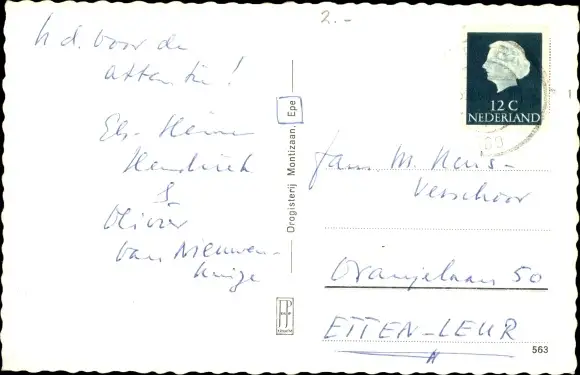 2.-
h d. voor de
attentie!
Els - Heim
Hendrick
&
Olivier
van Nieuwen-
huize
Dropisterij Montizaan, Epe
12 C
NEDERLAND
69
Fam. M. Huis-
Verschoor
Oranjelaan 50
ETTEN-LEUR
563